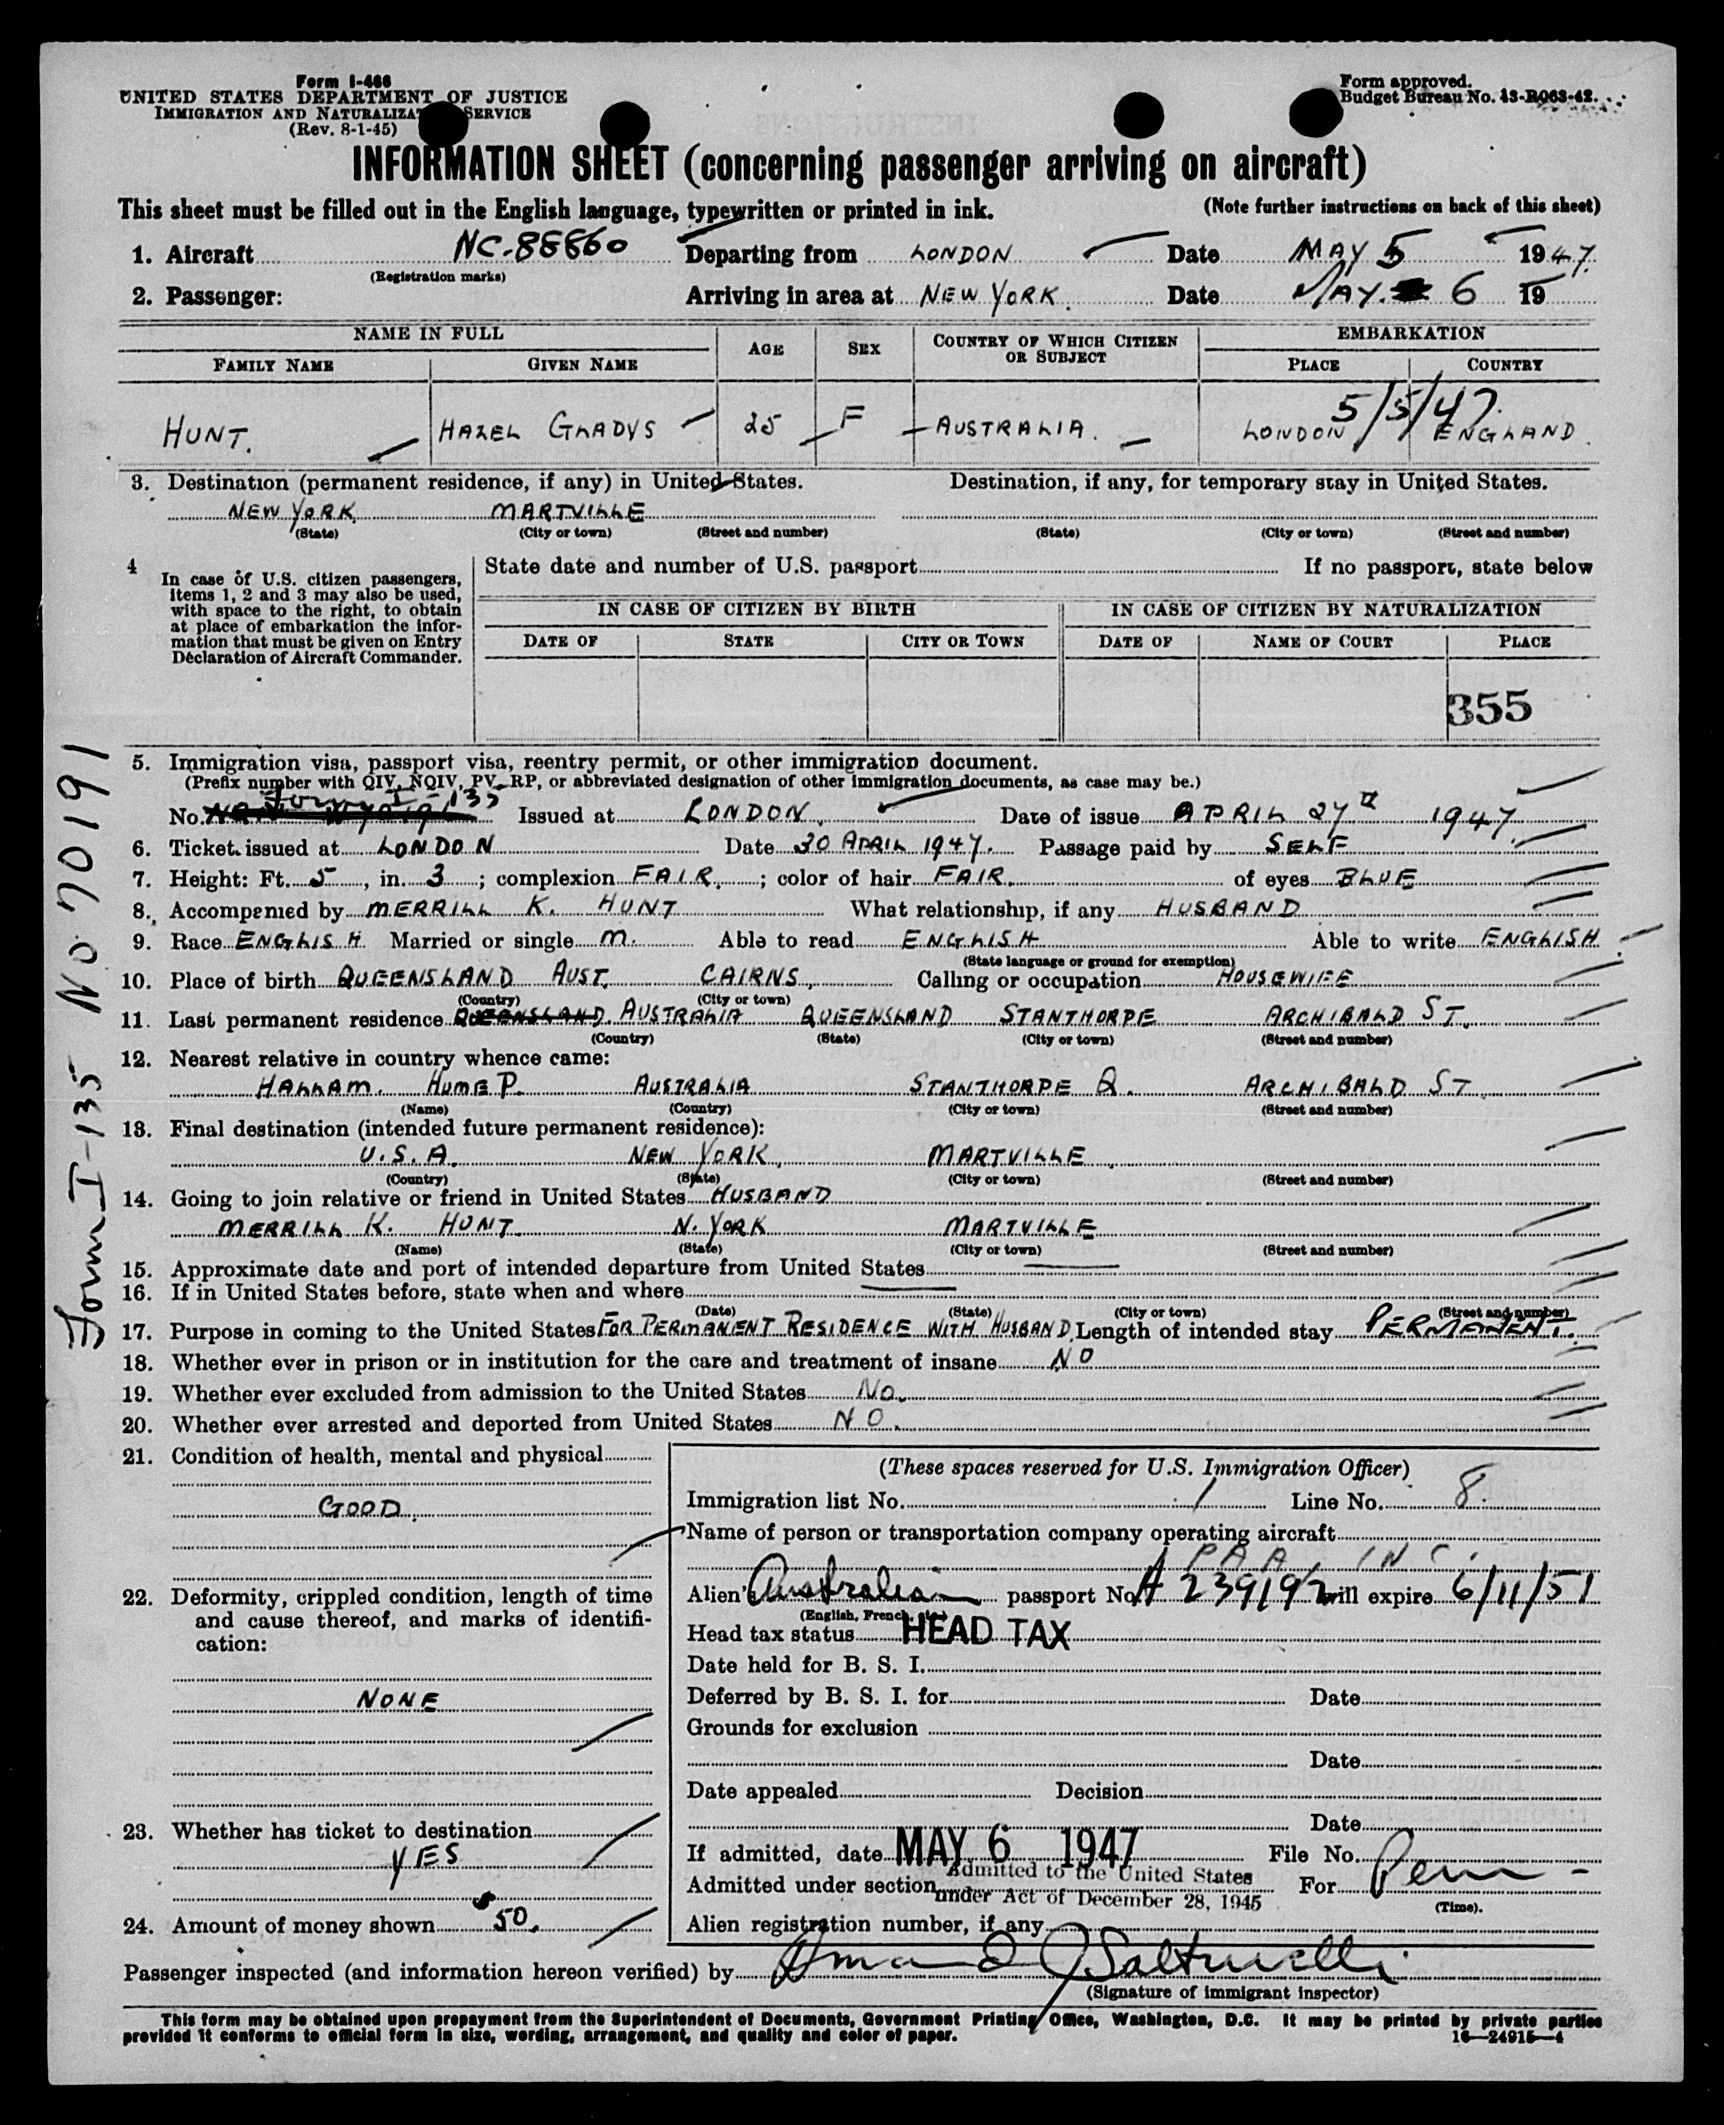 Form I-466
UNITED STATES DEPARTMENT OF JUSTICE
IMMIGRATION AND NATURALIZATION SERVICE
(Rev. 8-1-45)
Form approved.
Budget Bureau No. 43-R063-42.
INFORMATION SHEET (concerning passenger arriving on aircraft)
This sheet must be filled out in the English language, typewritten or printed in ink. (Note further instructions on back of this sheet)
1. Aircraft NC-88860 Departing from LONDON Date MAY 5 1947.
(Registration marks)
2. Passenger: Arriving in area at NEW YORK. Date MAY. 6 19
NAME IN FULL AGE SEX COUNTRY OF WHICH CITIZEN OR SUBJECT EMBARKATION
FAMILY NAME GIVEN NAME PLACE COUNTRY
5/5/47.
HUNT. HAZEL GLADYS 25 F AUSTRALIA. LONDON ENGLAND.
3. Destination (permanent residence, if any) in United States. Destination, if any, for temporary stay in United States.
NEW YORK MARTVILLE
(State) (City or town) (Street and number) (State) (City or town) (Street and number)
4 In case of U.S. citizen passengers, items 1, 2 and 3 may also be used, with space to the right, to obtain at place of embarkation the information that must be given on Entry Declaration of Aircraft Commander.
State date and number of U.S. passport If no passport, state below
IN CASE OF CITIZEN BY BIRTH IN CASE OF CITIZEN BY NATURALIZATION
DATE OF STATE CITY OR TOWN DATE OF NAME OF COURT PLACE
355
5. Immigration visa, passport visa, reentry permit, or other immigration document.
(Prefix number with QIV, NQIV, PV, RP, or abbreviated designation of other immigration documents, as case may be.)
No. Form I-135 Issued at LONDON. Date of issue APRIL 27th 1947.
6. Ticket issued at LONDON Date 30 APRIL 1947. Passage paid by SELF
7. Height: Ft. 5, in. 3; complexion FAIR.; color of hair FAIR. of eyes BLUE
8. Accompanied by MERRILL K. HUNT What relationship, if any HUSBAND
9. Race ENGLISH Married or single M. Able to read ENGLISH Able to write ENGLISH
(State language or ground for exemption)
10. Place of birth QUEENSLAND AUST. CAIRNS, Calling or occupation HOUSEWIFE
(Country) (City or town)
11. Last permanent residence QUEENSLAND AUSTRALIA QUEENSLAND STANTHORPE ARCHIBALD ST.
(Country) (State) (City or town) (Street and number)
12. Nearest relative in country whence came:
HALLAM. HUME P. AUSTRALIA STANTHORPE Q. ARCHIBALD ST
(Name) (Country) (City or town) (Street and number)
13. Final destination (intended future permanent residence):
U.S.A. NEW YORK, MARTVILLE.
(Country) (State) (City or town) (Street and number)
14. Going to join relative or friend in United States HUSBAND
MERRILL K. HUNT N. YORK MARTVILLE
(Name) (State) (City or town) (Street and number)
15. Approximate date and port of intended departure from United States
16. If in United States before, state when and where
(Date) (State) (City or town) (Street and number)
17. Purpose in coming to the United States FOR PERMANENT RESIDENCE WITH HUSBAND. Length of intended stay PERMANENT.
18. Whether ever in prison or in institution for the care and treatment of insane NO
19. Whether ever excluded from admission to the United States No.
20. Whether ever arrested and deported from United States NO.
Form I-135 No 70191
21. Condition of health, mental and physical
GOOD.
22. Deformity, crippled condition, length of time and cause thereof, and marks of identification:
NONE
23. Whether has ticket to destination
YES
24. Amount of money shown $50.
(These spaces reserved for U.S. Immigration Officer)
Immigration list No. 1 Line No. 8.
Name of person or transportation company operating aircraft
P A A, INC.
Alien's Australian passport No. A 239192 will expire 6/11/51
(English, French, etc.)
Head tax status HEAD TAX
Date held for B. S. I.
Deferred by B. S. I. for Date
Grounds for exclusion
Date
Date appealed Decision
Date
If admitted, date MAY 6 1947 File No.
Admitted under section Admitted to the United States under Act of December 28, 1945 For Perm -
(Time).
Alien registration number, if any
Passenger inspected (and information hereon verified) by
(Signature of immigrant inspector)
This form may be obtained upon prepayment from the Superintendent of Documents, Government Printing Office, Washington, D.C. It may be printed by private parties
provided it conforms to official form in size, wording, arrangement, and quality and color of paper. 16—24915-4